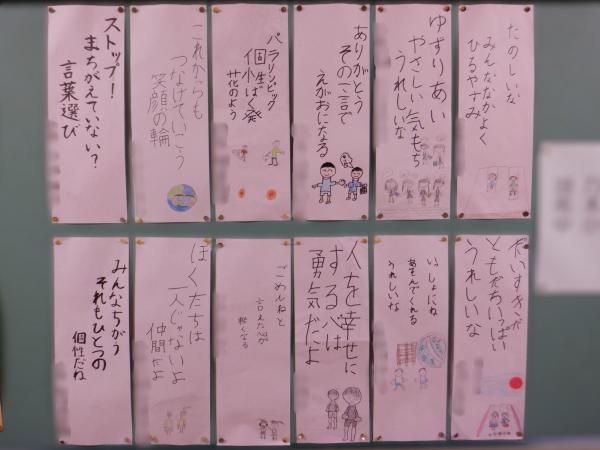 たのしいな
みんななかよく
ひるやすみ
ゆずりあい
やさしい気もち
うれしいな
ありがとう
その一言で
えがおになる
パラリンピック
個性ばく発
花のよう
これからも
つなげていこう
笑顔の輪
ストップ!
まちがえていない?
言葉選び
だいすきだ
ともだちいっぱい
うれしいな
いっしょにね
あそんでくれる
うれしいな
人を幸せに
する心は
勇気だよ
ごめんねと
言えた心が
軽くなる
ぼくたちは
一人じゃないよ
仲間だよ
みんなちがう
それもひとつの
個性だね